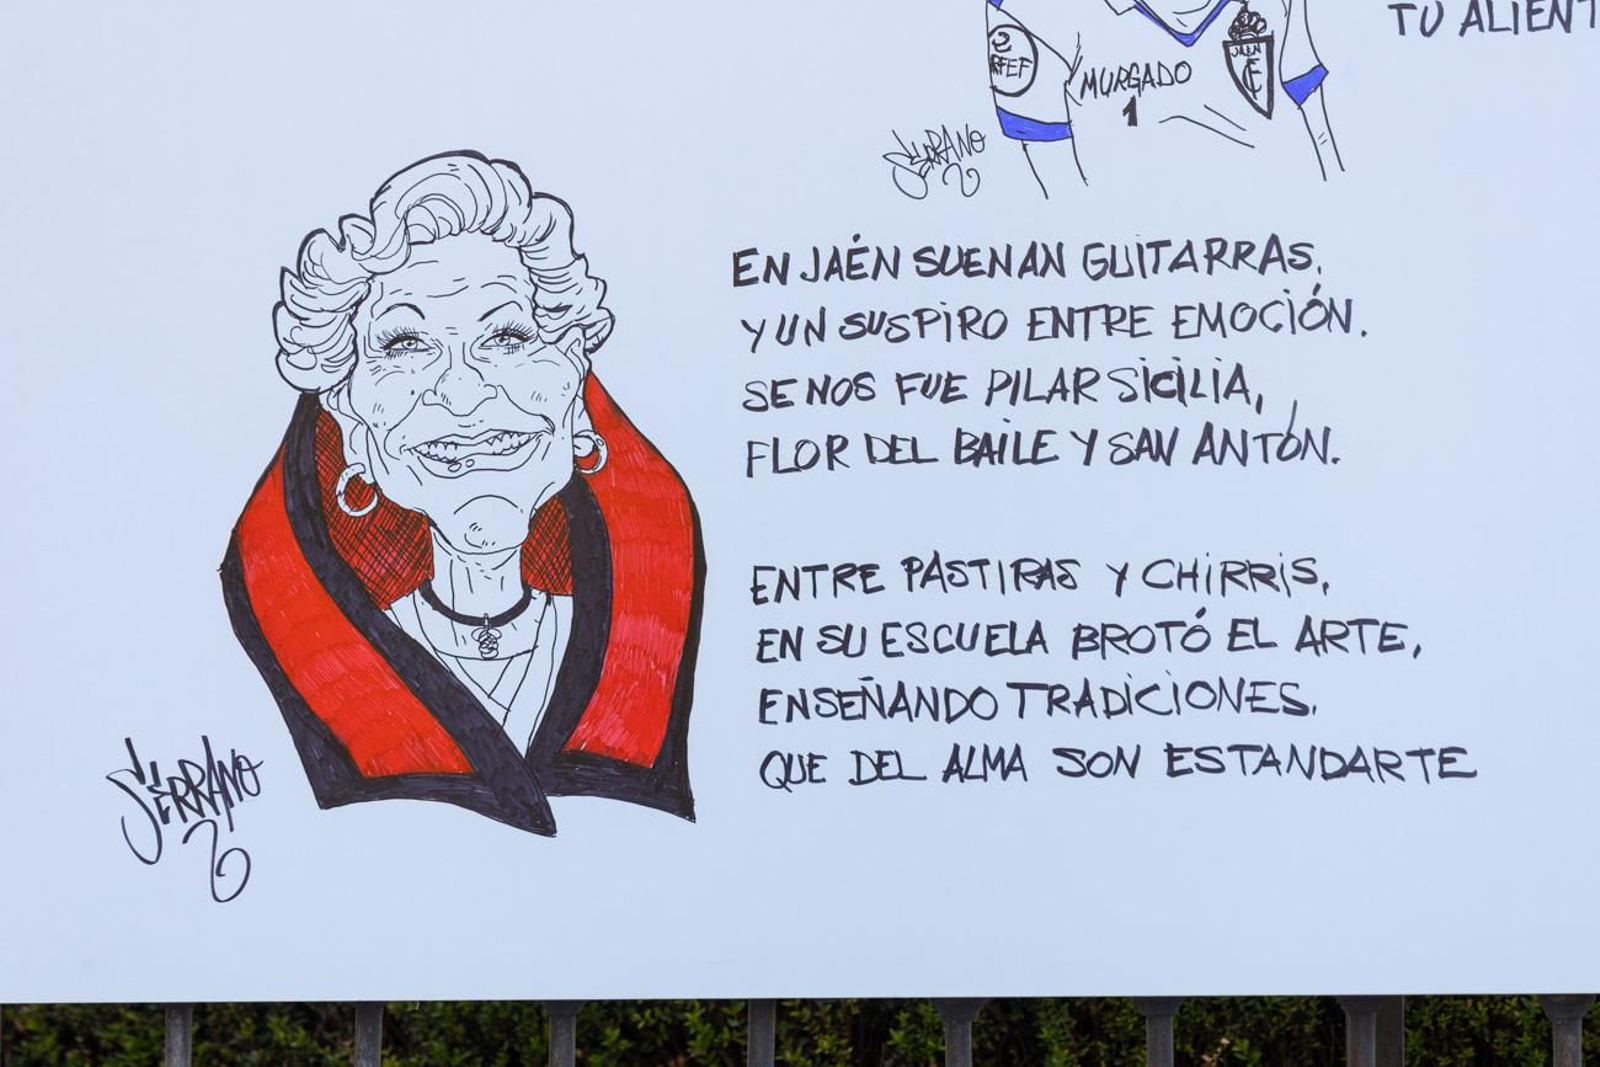 TU ALIENT
RFEF
MURGADO
1
JAÉN
SERRANO
EN JAÉN SUENAN GUITARRAS,
Y UN SUSPIRO ENTRE EMOCIÓN.
SE NOS FUE PILAR SICILIA,
FLOR DEL BAILE Y SAN ANTÓN.
ENTRE PASTIRAS Y CHIRRIS,
EN SU ESCUELA BROTÓ EL ARTE,
ENSEÑANDO TRADICIONES.
QUE DEL ALMA SON ESTANDARTE
SERRANO